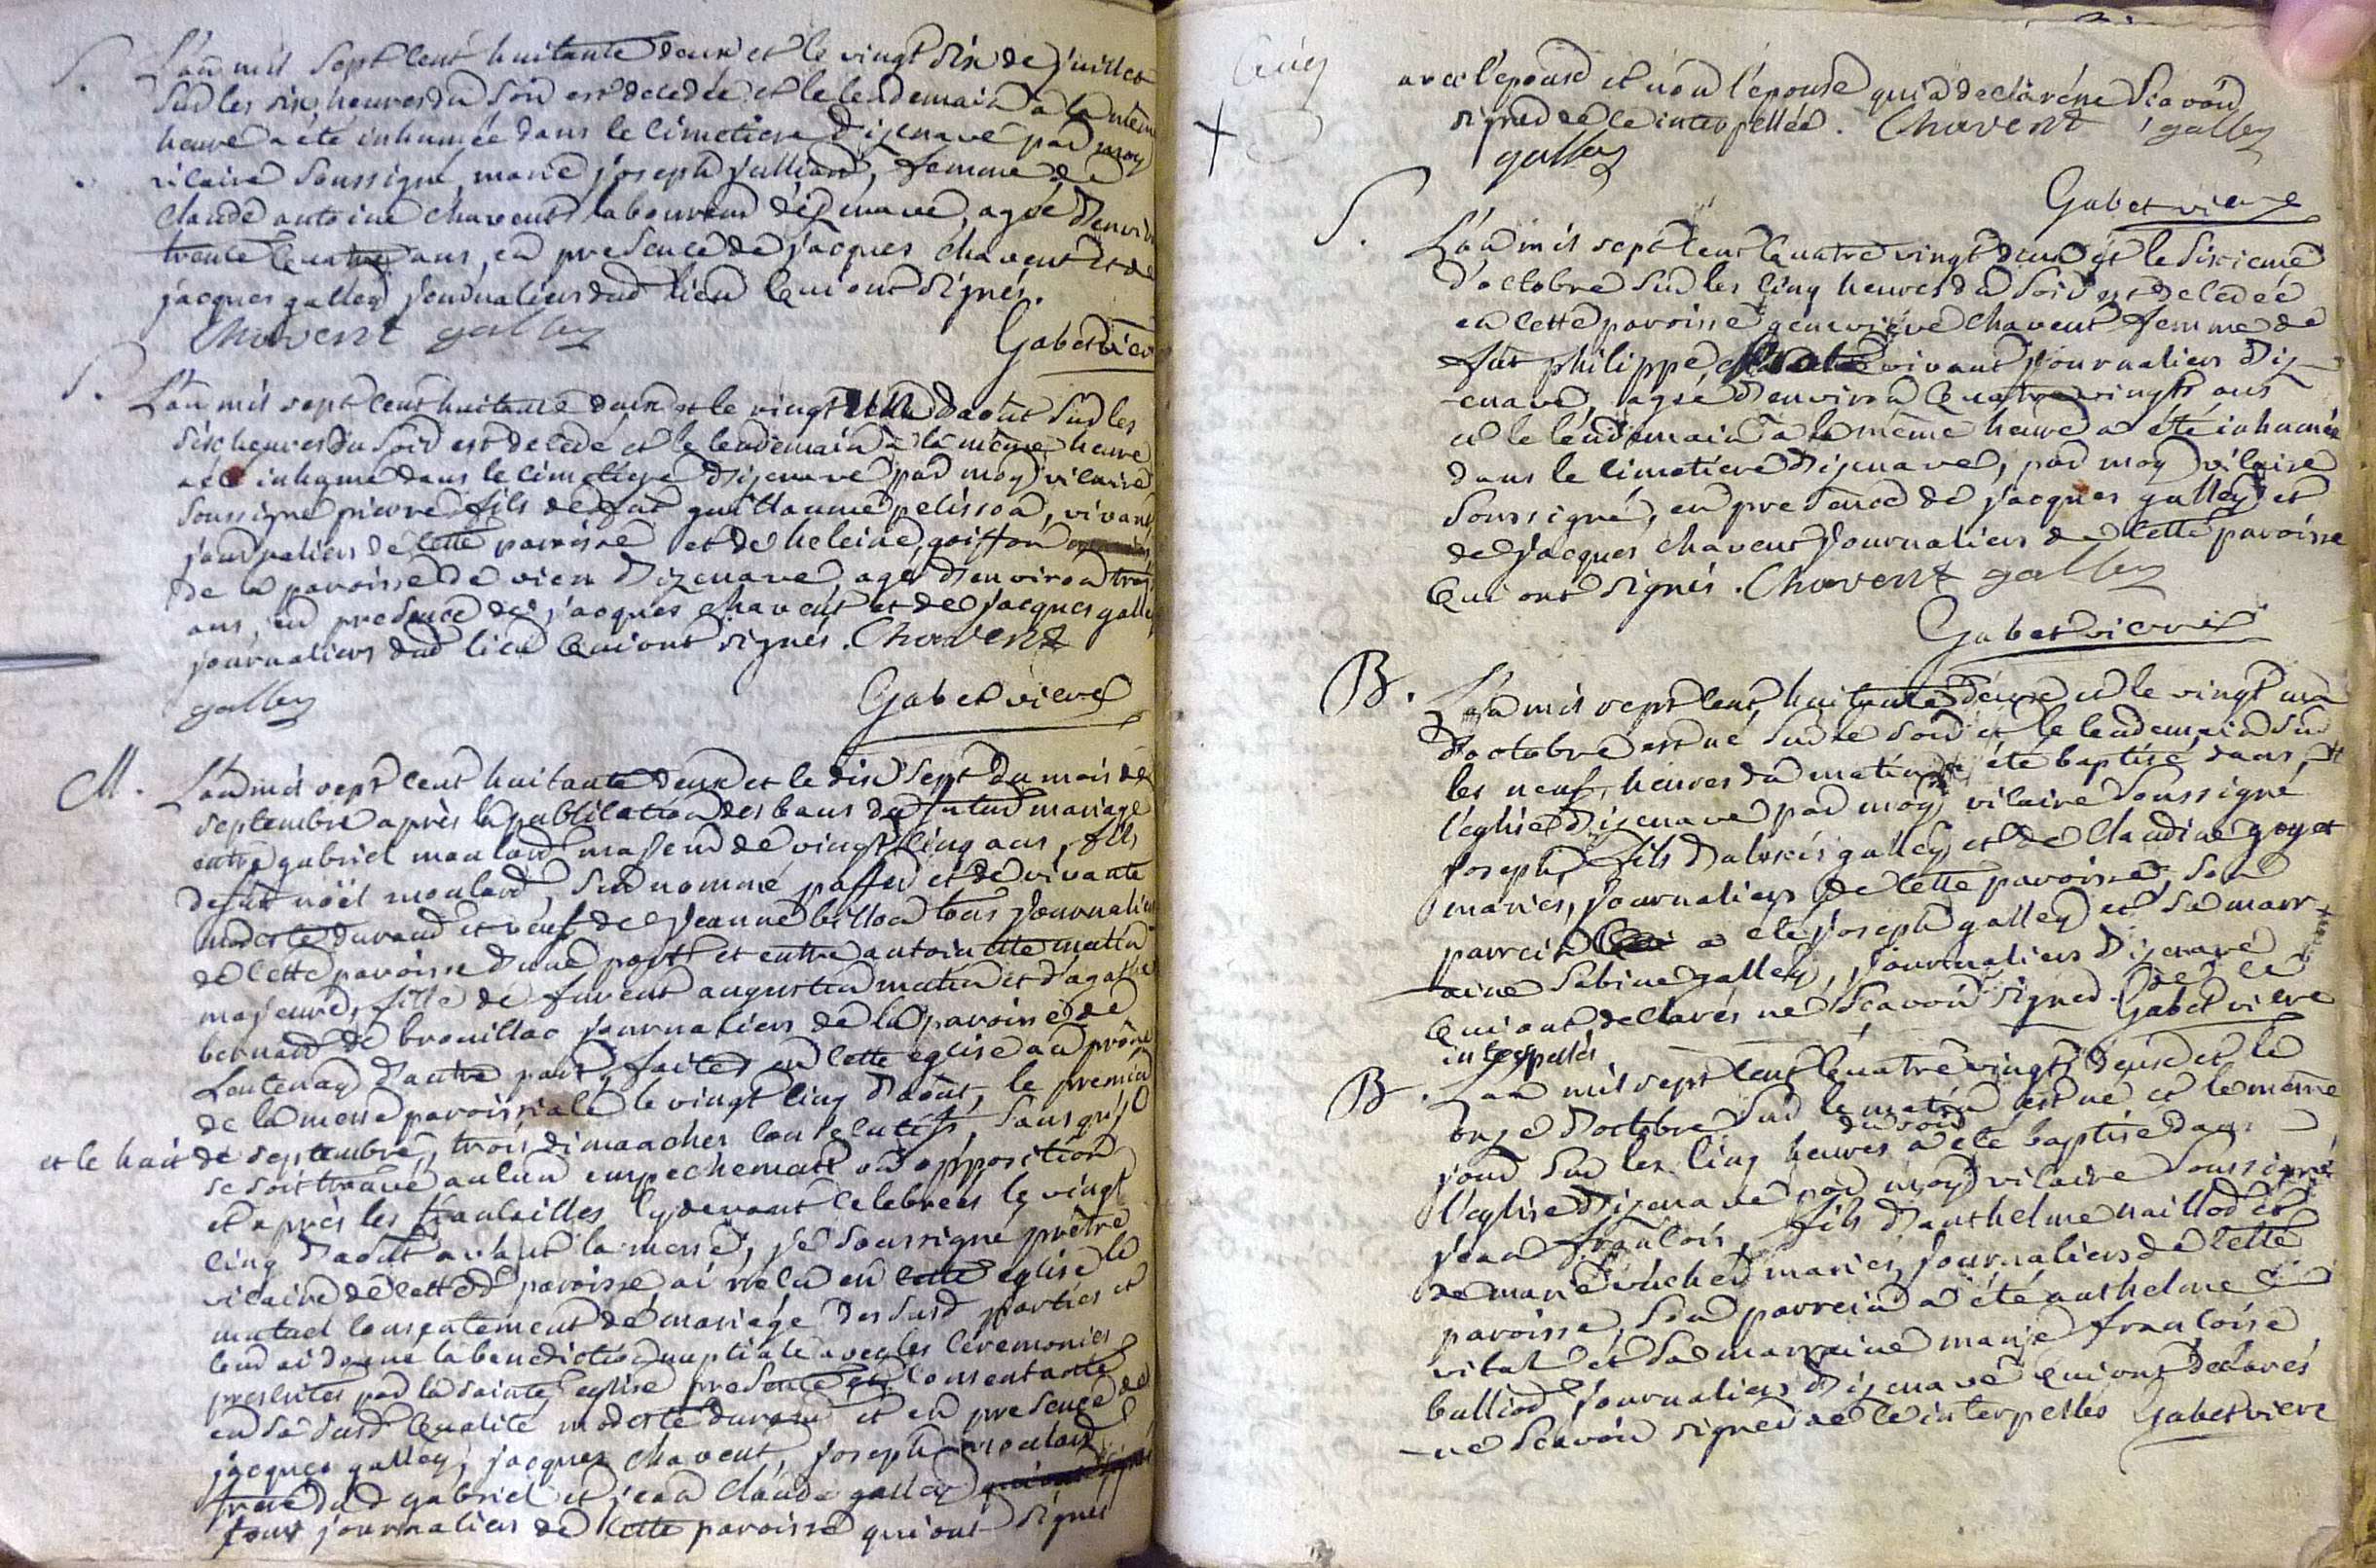 S. L'an mil sept cent huitante deux et le vingt six de juillet
sur les six heures du soir est decedée et le lendemain a la meme
heure a été inhumée dans le cimetiere d'izenave par moy
vicaire soussigné, marie joseph jullian, femme de
claude antoine chavent laboureur d'izenave, agée d'environ
trente quatre ans, en presence de jacques chavent et de
jacques galley journaliers dud lieu qui ont signés.
Chavent galley
Gabet vicr
S. L'an mil sept cent huitante deux et le vingt un d'aout sur les
six heures du soir est decedé et le lendemain a la même heure
a été inhumé dans le cimetiere d'izenave par moy vicaire
soussigné pierre fils de fut guillaume pelisson, vivant
journalier de cette paroisse et de heleine goiffon
de la paroisse de vieu d'izenave, agé d'environ trois
ans, en presence de jacques chavent et de jacques galley
journaliers dud lieu qui ont signés. Chavent
galley
Gabet vicre
M. L'an mil sept cent huitante deux et le dix sept du mois de
septembre après la publication des bans du futur mariage
entre gabriel moulard majeur de vingt cinq ans, fils
de fut noël moulard, surnommé paffu et de vivante
modeste durand et veuf de jeanne billon tous journaliers
de cette paroisse d'une part et entre antoinette matin
majeure, fille de furent augustin matin et d'agathe
bernard de brouillac journaliers de la paroisse de
Lentenay d'autre part, faites en cette eglise au prône
de la messe paroissiale le vingt cinq d'aout, le premier
et le huit de septembre, trois dimanches consecutifs, sans qu'il
se soit trouvé aucun empechement ou opposition
et après les fiancailles cy devant celebrées le vingt
cinq d'aout avant la messe, je soussigné prêtre
vicaire de cette d paroisse, ai reçu en cette eglise le
mutuel consentement de mariage des susd parties et
leur ai donné la benediction nuptiale avec les ceremonies
prescrites par la sainte eglise presente et consentante
en sa susd qualité modeste durand et en presence de
jacques galley, jacques chavent, joseph moulard
frere dud gabriel et jean claude galley
tous journaliers de cette paroisse qui ont signés
avec l'epoux et non l'épouse qui a declaré ne scavoir
signer de ce interpellée. Chavent galley
galley
Gabet vicre
S. L'an mil sept cent quatre vingt deux et le sixieme
d'octobre sur les cinq heures du soir est decedée
en cette paroisse genevieve chavent femme de
fut philippe vivant journalier d'iz-
enave, agée d'environ quatre vingts ans
et le lendemain a la même heure a été inhumée
dans le cimetiere d'izenave, par moy vicaire
soussigné, en presence de jacques galley et
de jacques chavent journaliers de cette paroisse
qui ont signés. Chavent galley
Gabet vicre
B. L'an mil sept cent huitante deux et le vingt un
d'octobre est né sur le soir et le lendemain sur
les neuf heures du matin a été baptisé dans
l'eglise d'izenave par moy vicaire soussigné
joseph, fils d'alexis galley et de claudine goyet
mariés, journaliers de cette paroisse, son
parrein a été joseph galley et sa marr-
aine sabine galley, journaliers d'izenave
qui ont declarés ne scavoir signer. de ce Gabet vicre
interpellés
B. L'an mil sept cent quatre vingts deux et le
onze d'octobre sur le matin est né et le même
jour sur les cinq heures du soir a été baptisé dans
l'eglise d'izenave par moy vicaire soussigné
jean francois, fils d'anthelme naillod et
de marie mariés, journaliers de cette
paroisse, son parrein a été anthelme
vital et sa marraine marie francoise
bulliod journaliers d'izenave qui ont declarés
ne scavoir signer de ce interpellés Gabet vicre